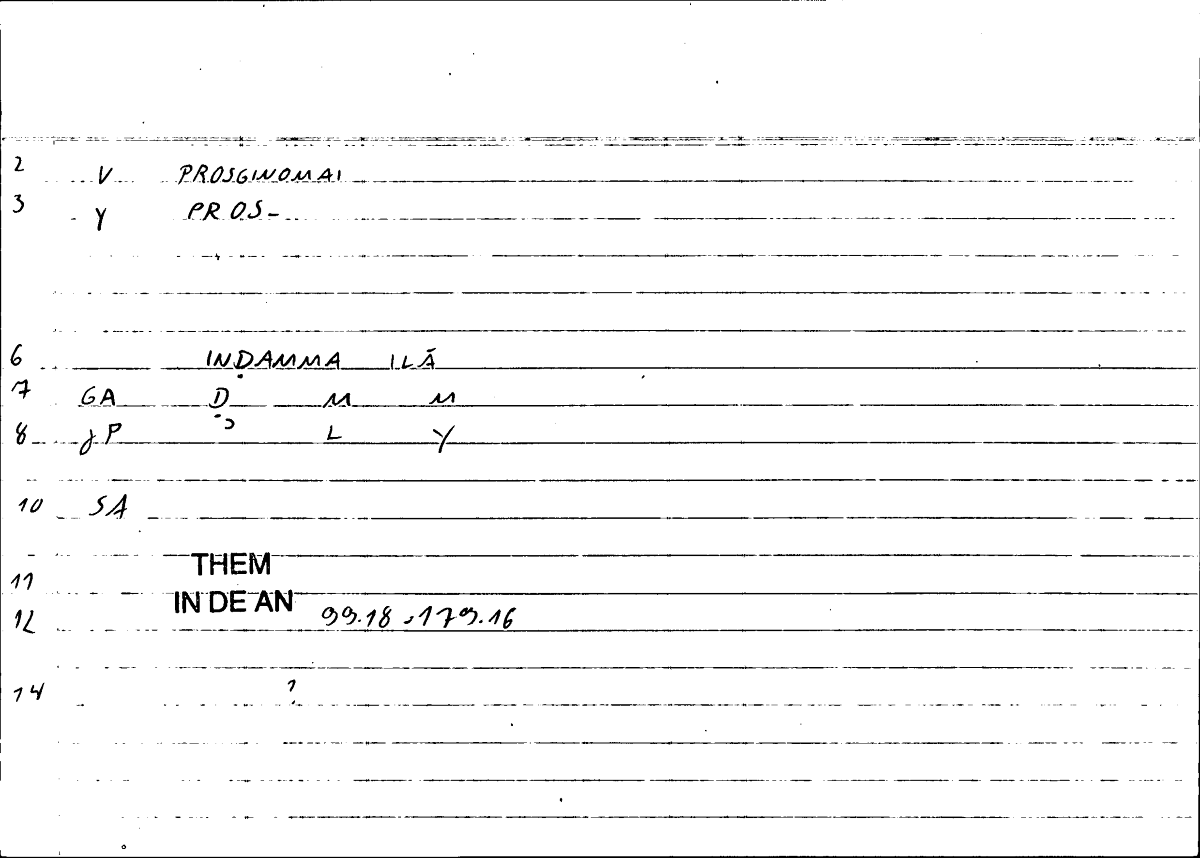 2 V PROSGINOMAI
3 Y PROS-
6 INḌAMMA ILĀ
7 GA Ḍ M M
8 JP L Y
10 SA
11 THEM
12 IN DE AN 99.18 , 179.16
14 ?